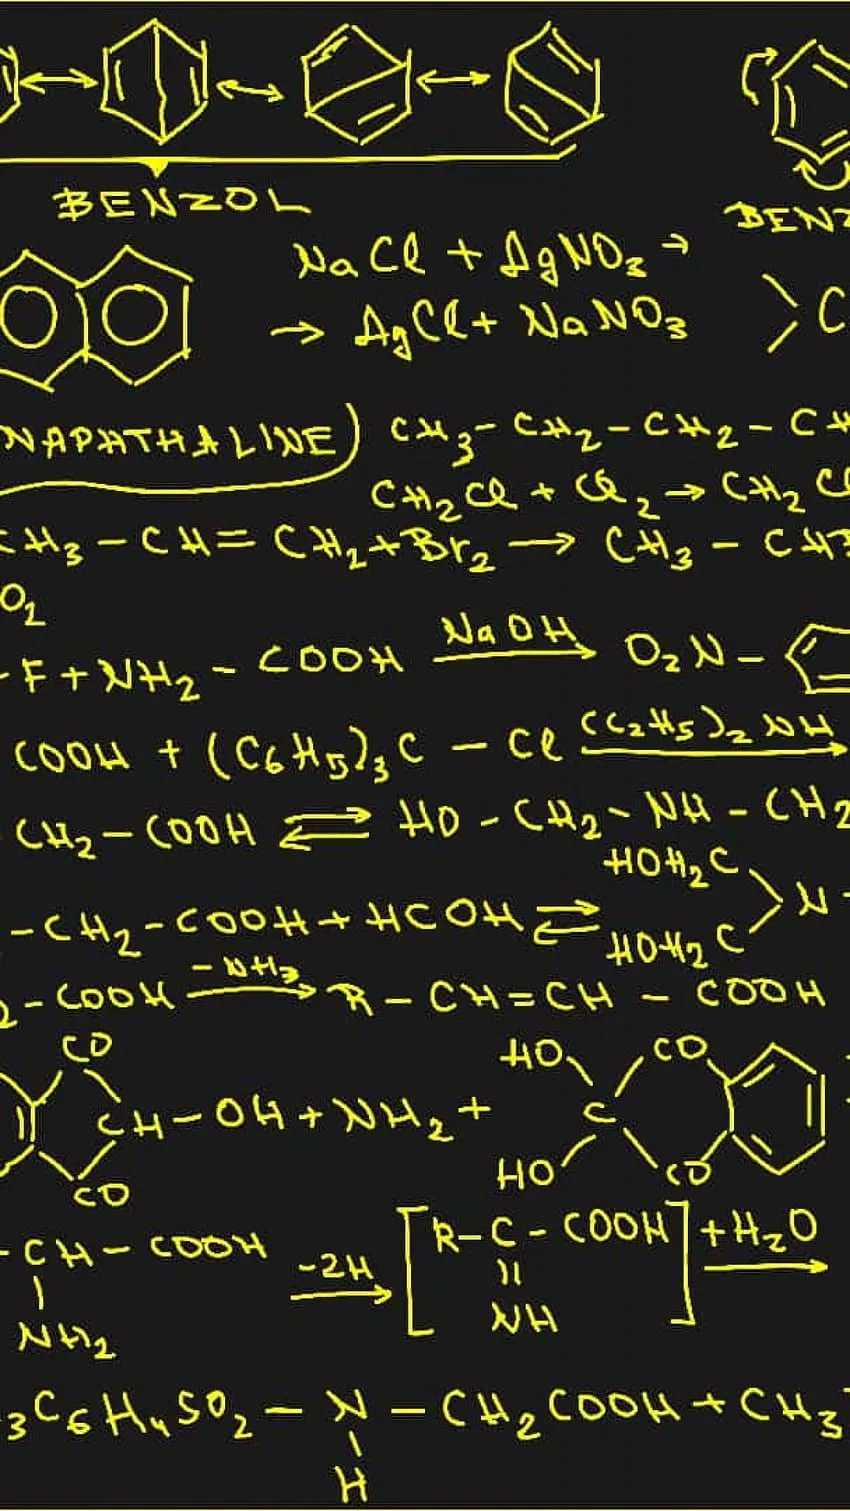 BENZOL
BENZ
NaCl + AgNO₃ →
→ AgCl + NaNO₃
C
NAPHTHALINE)
CH₃ - CH₂ - CH₂ - CH
CH₂Cl + Cl₂ → CH₂Cl
CH₃ - CH = CH₂ + Br₂ → CH₃ - CH
O₂
- F + NH₂ - COOH NaOH → O₂N -
COOH + (C₆H₅)₃C - Cl (C₂H₅)₂NH →
CH₂ - COOH ⇌ HO - CH₂ - NH - CH₂
- CH₂ - COOH + HCOH ⇌ HOH₂C HOH₂C > N -
₂ - COOH - NH₃ → R - CH = CH - COOH
CO HO CO
CH - OH + NH₂ + C
CO HO CO
- CH - COOH -2H → [R - C - COOH] + H₂O →
| ||
NH₂ NH
₃C₆H₄SO₂ - N - CH₂COOH + CH₃
|
H